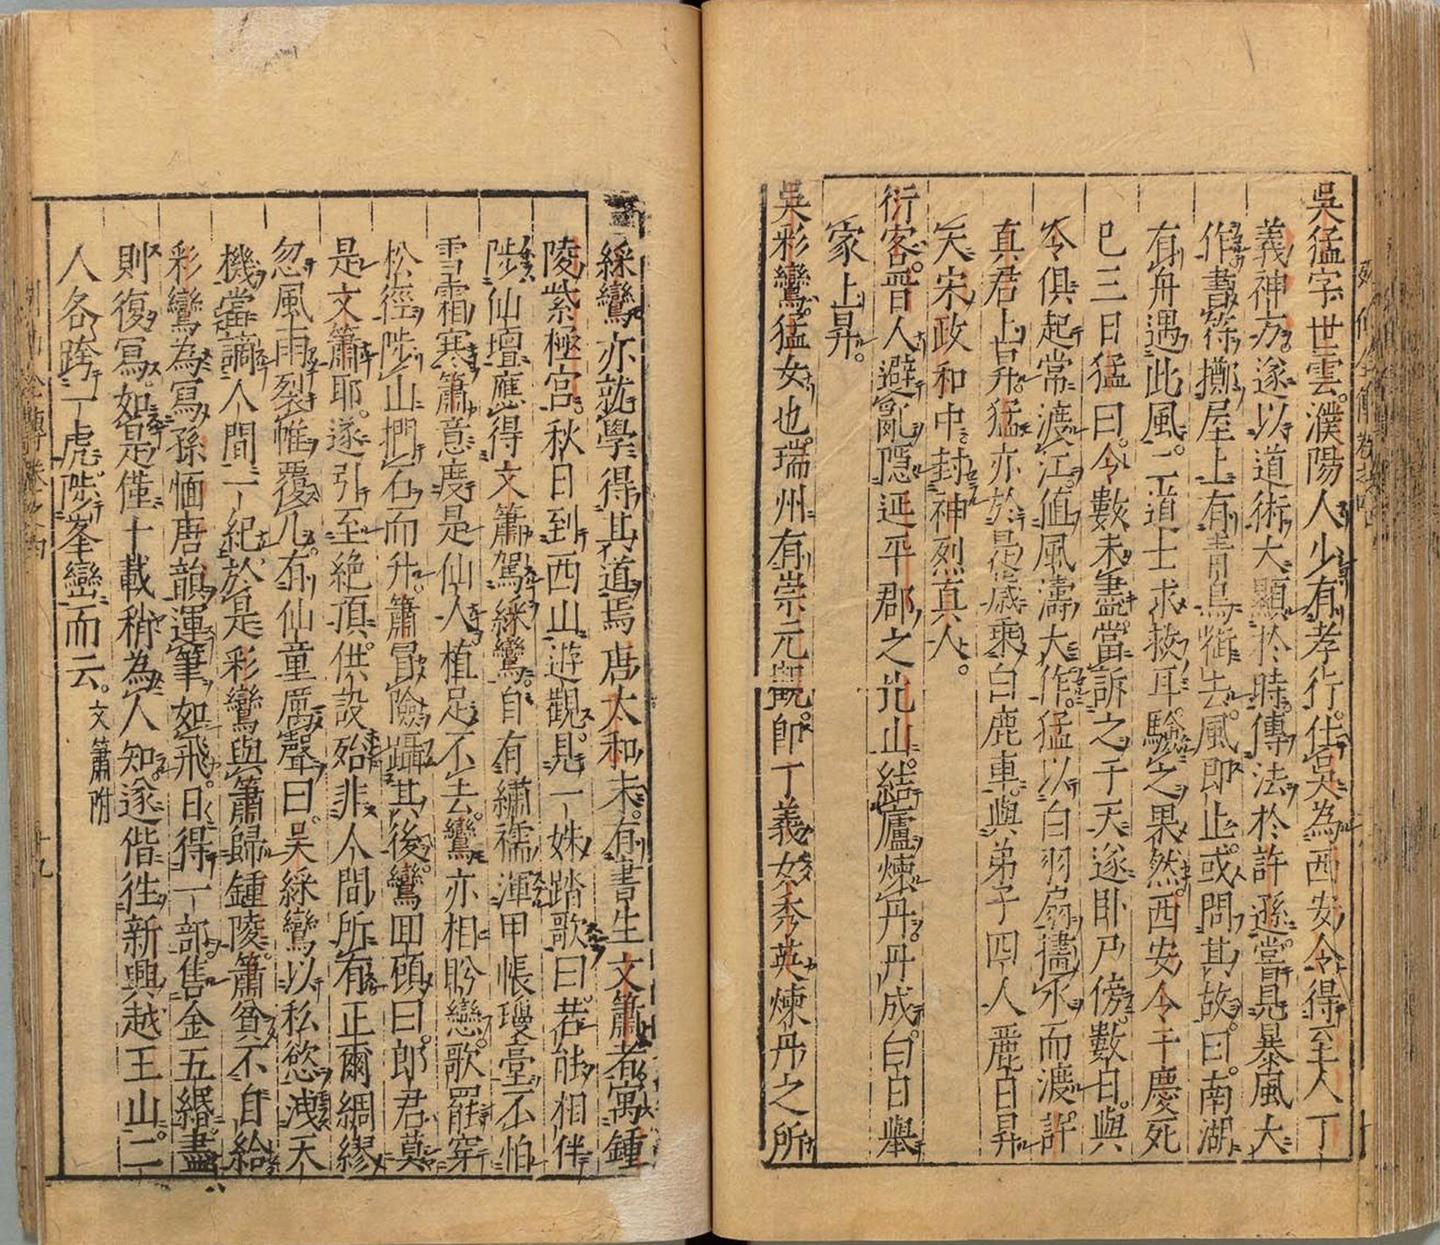 吳猛字世雲。濮陽人。少有孝行。仕吳為西安令。得至人丁
義神方。遂以道術大顯於時。傳法於許遜。嘗見暴風大
作。書符擲屋上。有青鳥啣去。風即止。或問其故。曰。南湖
有舟遇此風。二道士求救耳。驗之果然。西安令干慶死
已三日。猛曰。令數未盡。當訴之于天。遂臥尸傍。數日。與
令俱起。常渡江。值風濤大作。猛以白羽扇攇水而渡。許
真君上昇。猛亦於是歲乘白鹿車。與弟子四人麗日昇
天。宋政和中封神烈真人。
衍客。晉人。避亂隱延平郡之北山。結廬煉丹。丹成。白日舉
家上昇。
吳彩鸞。猛女也。瑞州有崇元觀。即丁義女秀英煉丹之所
綵鸞亦就學得其道焉。唐太和末。有書生文簫者。寓鍾
陵紫極宮。秋日到西山遊觀。見一姝踏歌曰。若能相伴
陟仙壇。應得文簫駕綵鸞。自有繡襦渾甲帳。瓊臺不怕
雪霜寒。簫意度是仙人。植足不去。鸞亦相盻戀。歌罷穿
松徑。陟山捫石而升。簫冒險躡其後。鸞回頭曰。郎君莫
是文簫耶。遂引至絶頂。供設殆非人間所有。正爾綢繆
忽風雨裂帷覆几。有仙童厲聲曰。吳綵鸞以私慾洩天
機。當謫人間一紀。於是彩鸞與簫歸鍾陵。簫貧不自給
彩鸞為寫孫愐唐韻。運筆如飛。日得一部。售金五緡。盡
則復寫。如是僅十載。稍為人知。遂偕徃新興越王山。二
人各跨一虎。陟峯巒而云。文簫附